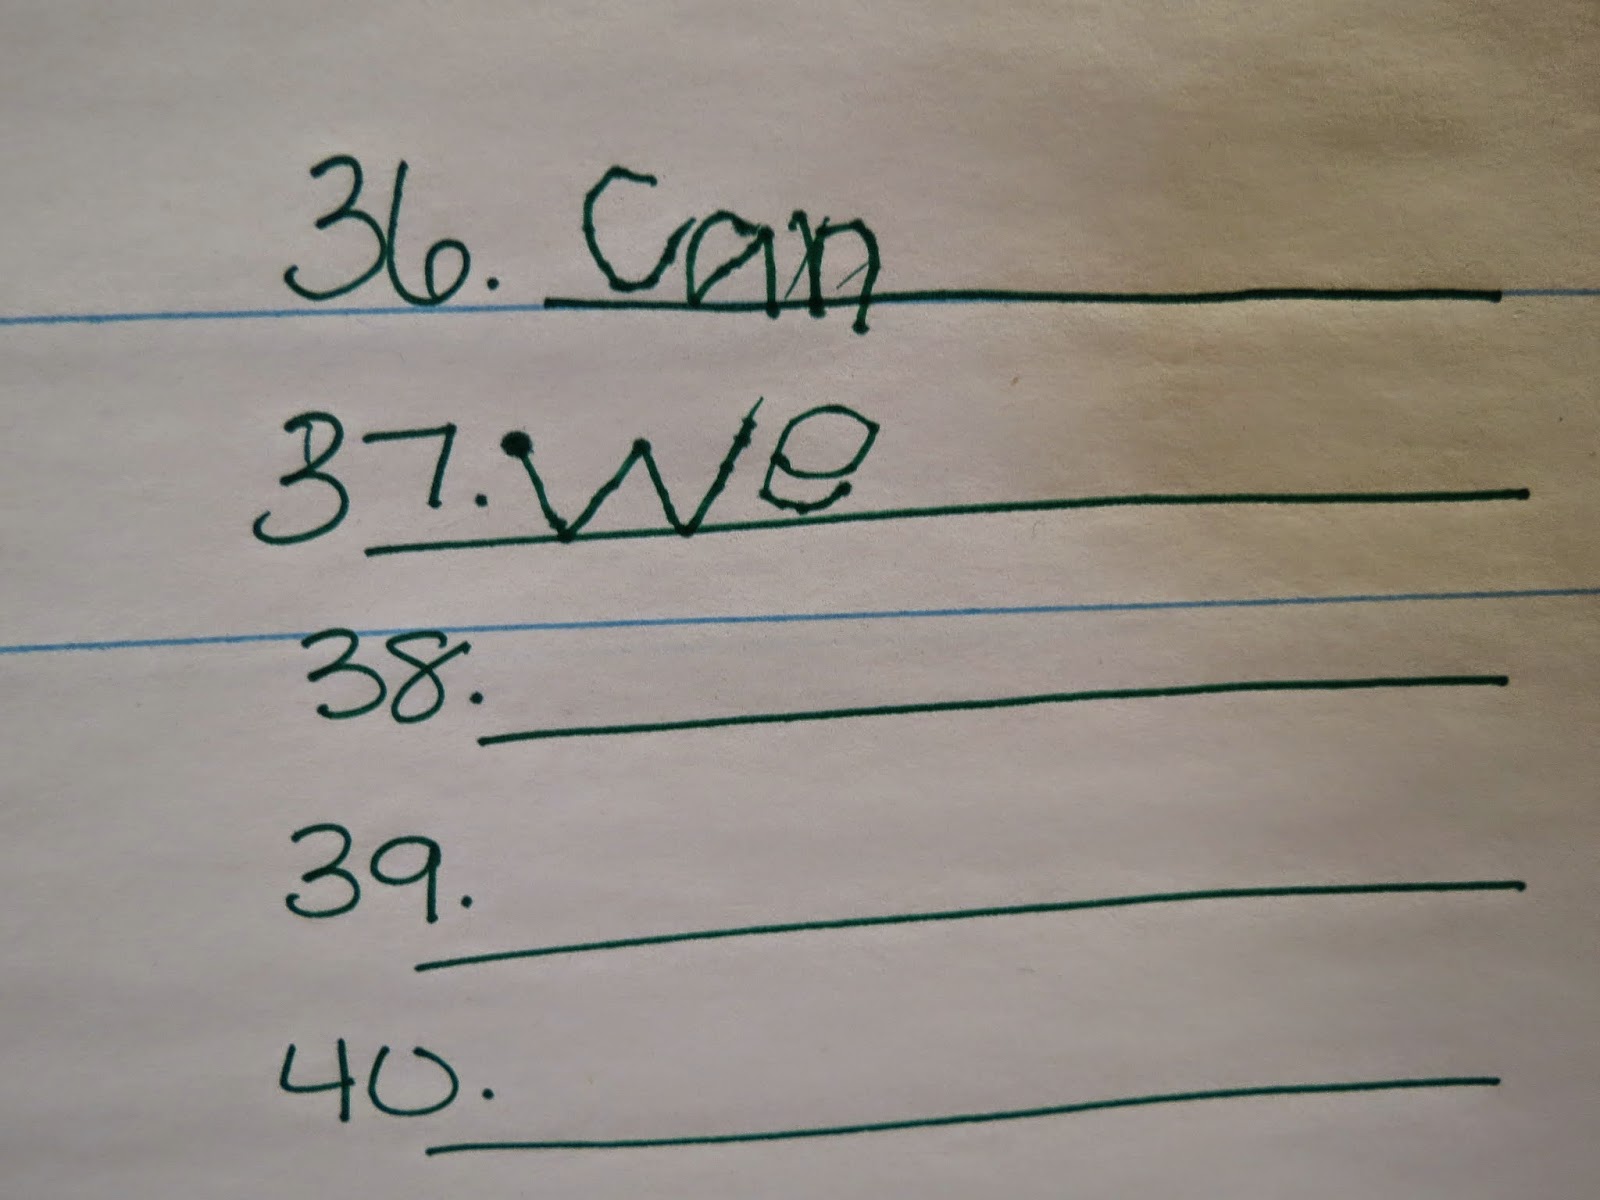 36. Can
37. We
38.
39.
40.